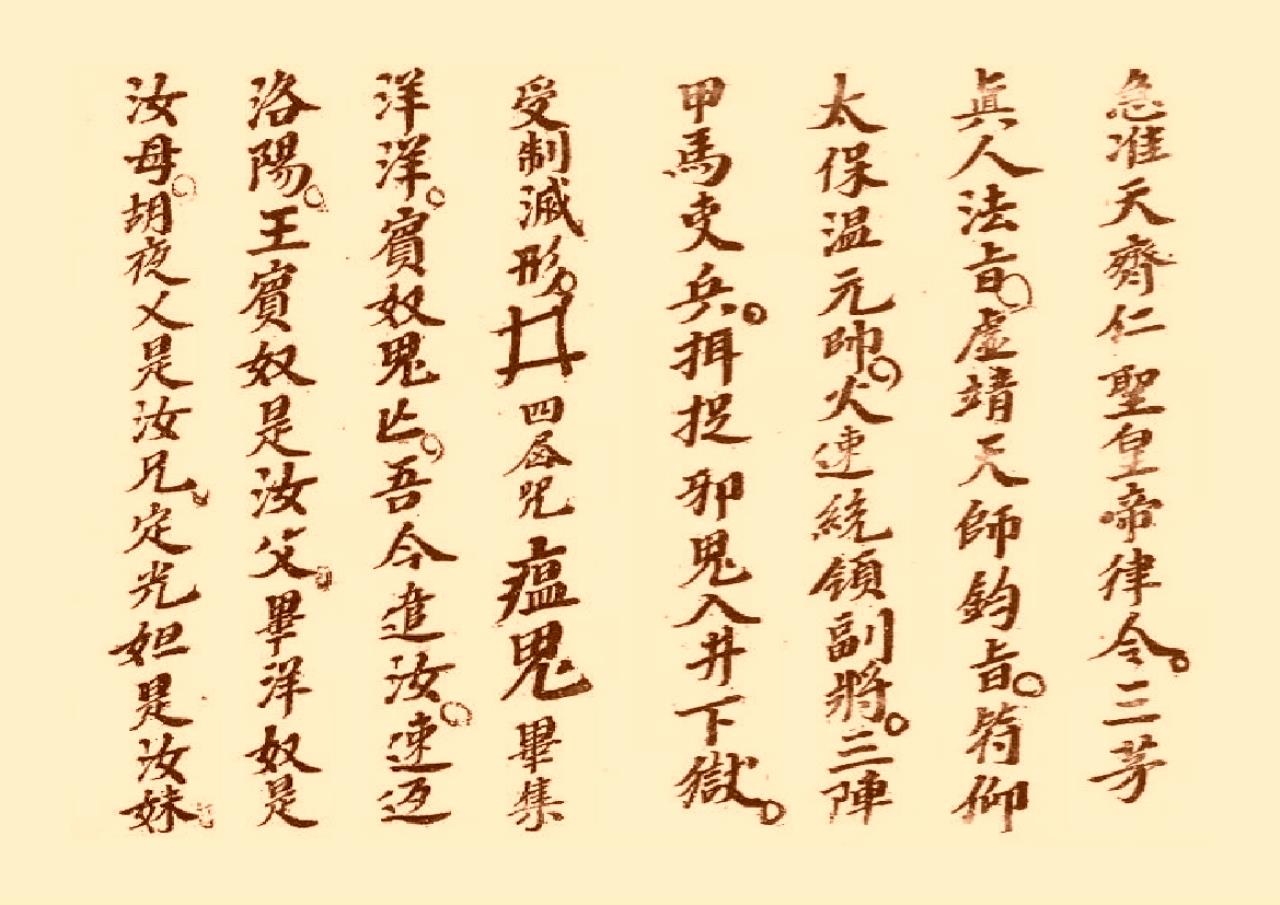 急准天齊仁聖皇帝律令。三茅
眞人法旨。虛靖天師鈞旨。符仰
太保温元帥。火速統領副將。三陣
甲馬吏兵。捉邪鬼入井下獄。
受制滅形。井四咒瘟鬼畢集
洋洋。賓奴鬼亡。吾今遣汝。速返
洛陽。王賓奴是汝父。畢洋奴是
汝母。胡夜乂是汝兄。定光妲是汝妹。